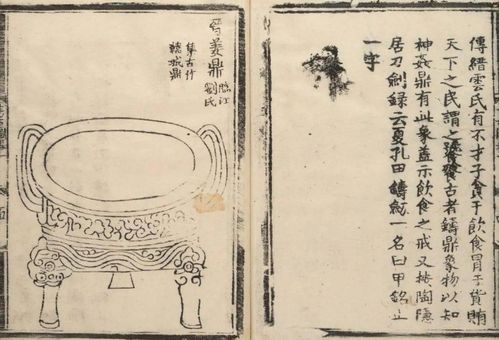 傳縉雲氏有不才子貪于飲食冒于貨賄
天下之民謂之饕餮古者鑄鼎象物以知
神姦鼎有此象蓋示飲食之戒又按陶隱
居刀劍錄云夏孔田鑄劍一名曰甲銘止
一字
晉姜鼎
臨江
劉氏
集古作
韓城鼎